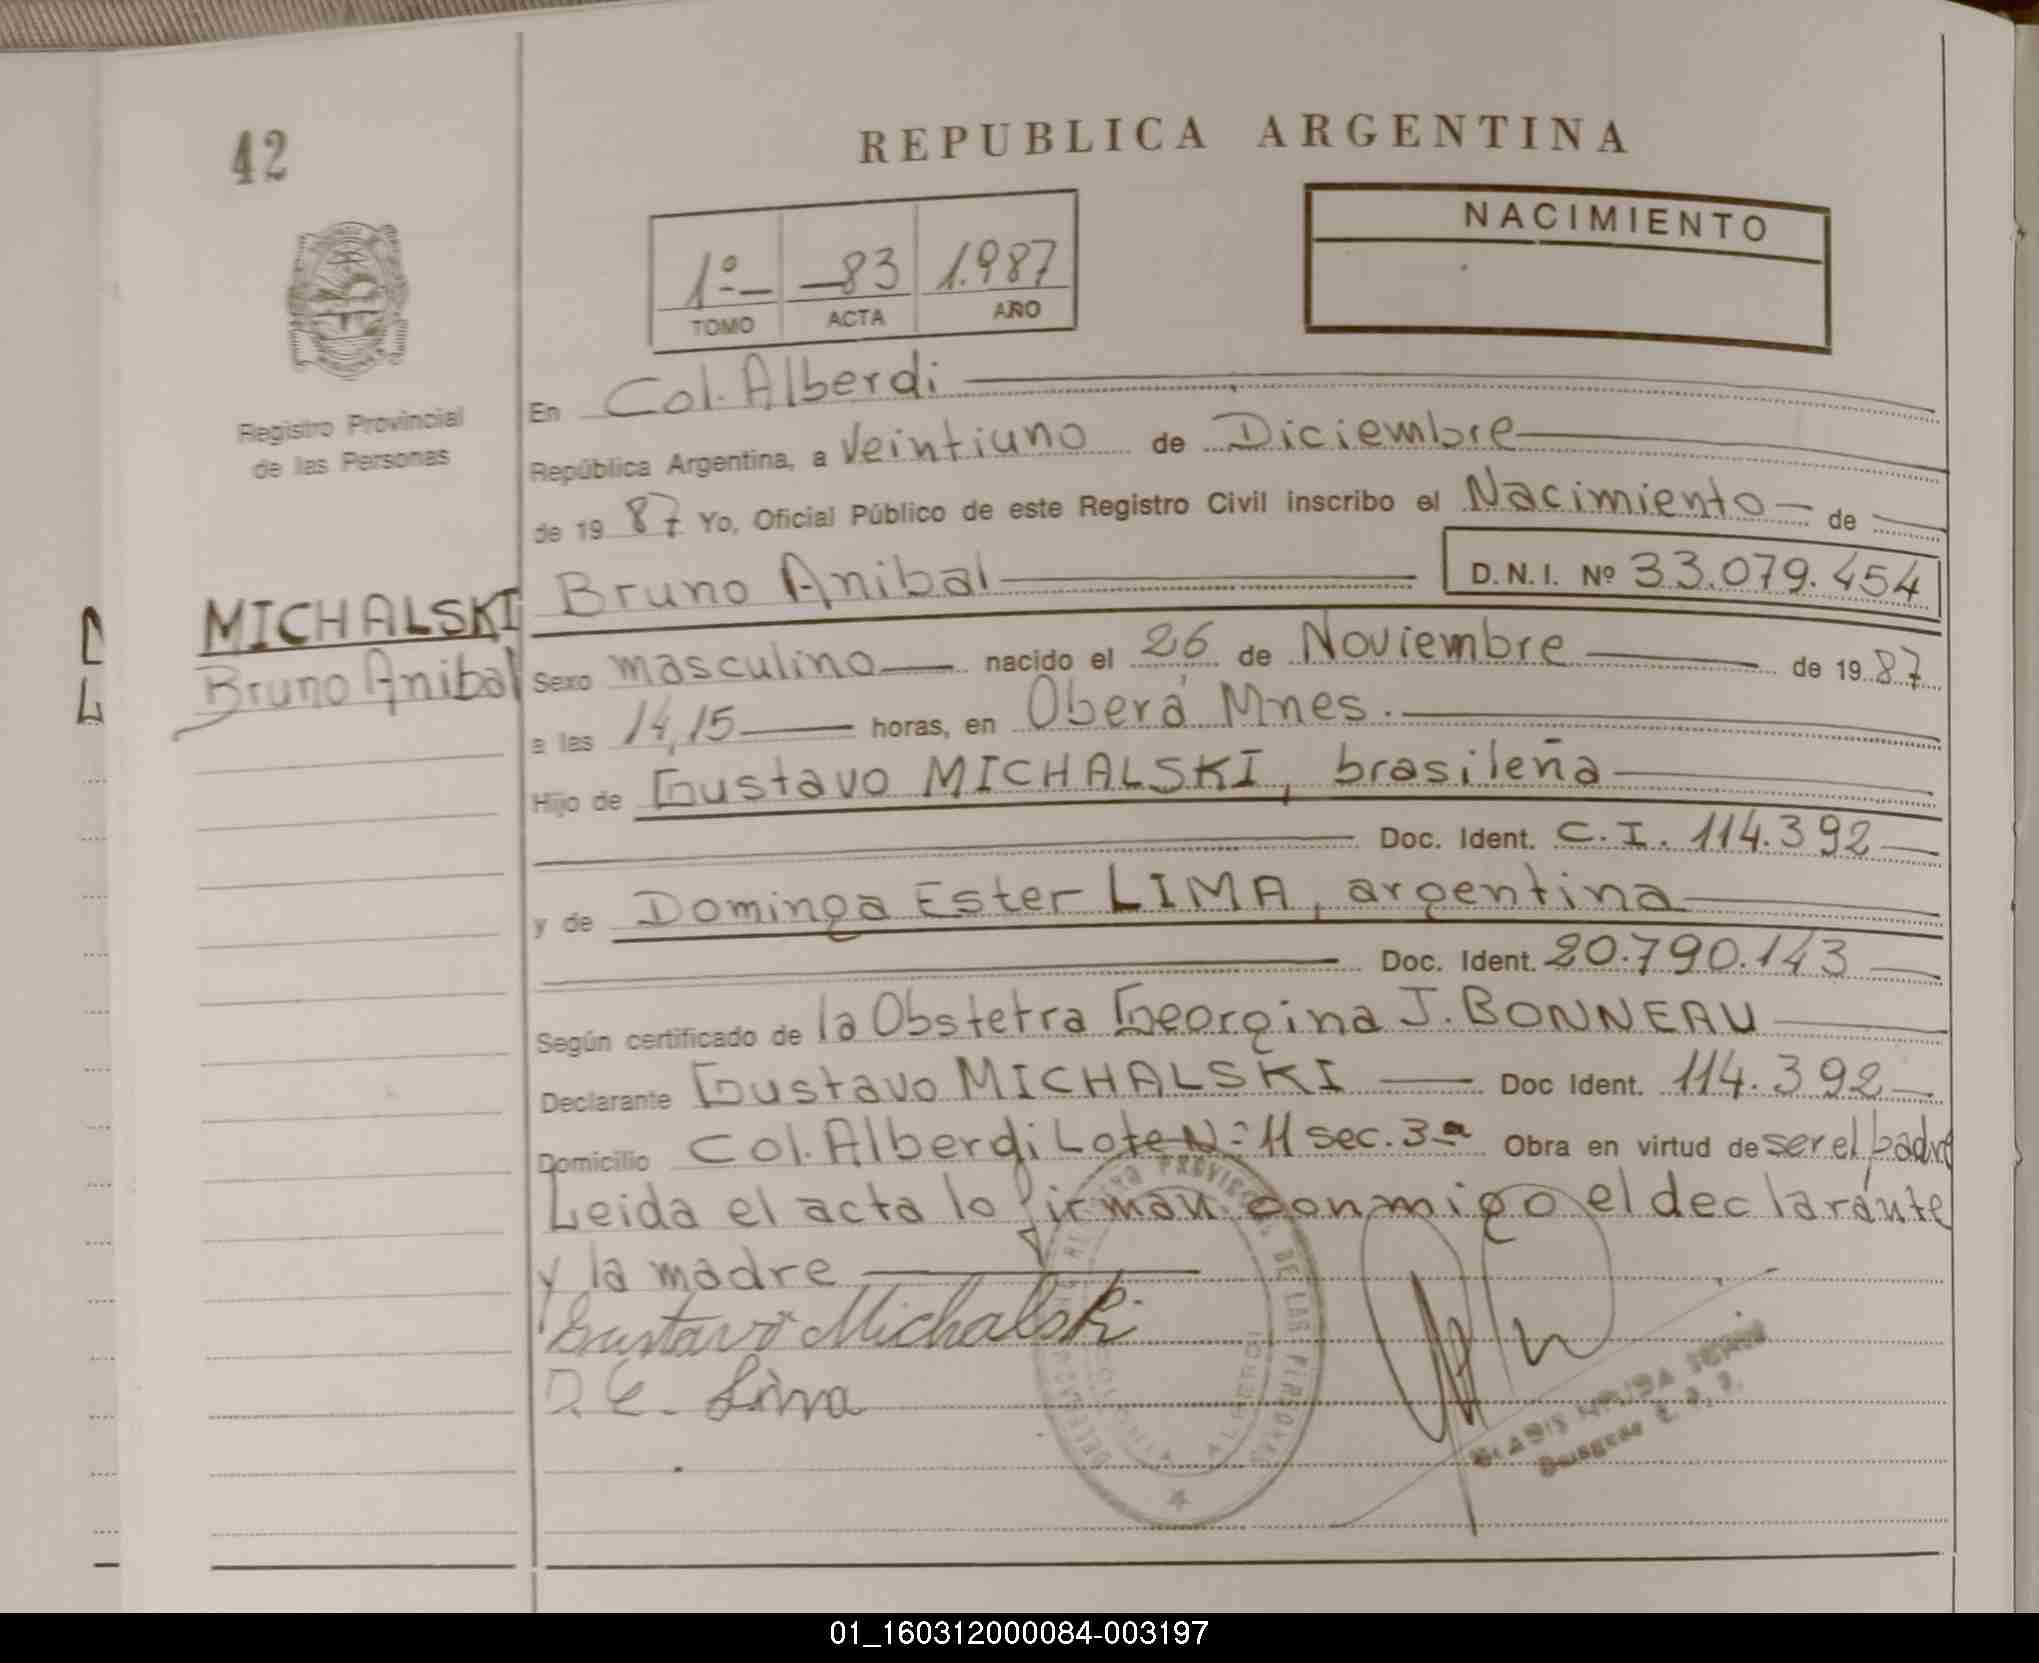 42
REPUBLICA ARGENTINA
NACIMIENTO
1º- -83 1.987
TOMO ACTA AÑO
Registro Provincial
de las Personas
En Col. Alberdi
República Argentina, a Veintiuno de Diciembre
de 19 87 Yo, Oficial Público de este Registro Civil inscribo el Nacimiento de
Bruno Anibal D.N.I. Nº 33.079.454
MICHALSKI
Bruno Anibal
Sexo masculino nacido el 26 de Noviembre de 19 87
a las 14,15 horas, en Oberá Mnes.
Hijo de Gustavo MICHALSKI, brasileña
Doc. Ident. C.I. 114.392
y de Dominga Ester LIMA, argentina
Doc. Ident. 20.790.143
Según certificado de la Obstetra Georgina J. BONNEAU
Declarante Gustavo MICHALSKI Doc Ident. 114.392
Domicilio Col. Alberdi Lote Nº 11 sec. 3ª Obra en virtud de ser el padre
Leida el acta lo firman conmigo el declarante
y la madre
Gustavo Michalski
D. E. Lima
REGISTRO PROVINCIAL DE LAS PERSONAS
COLONIA ALBERDI
01_160312000084-003197